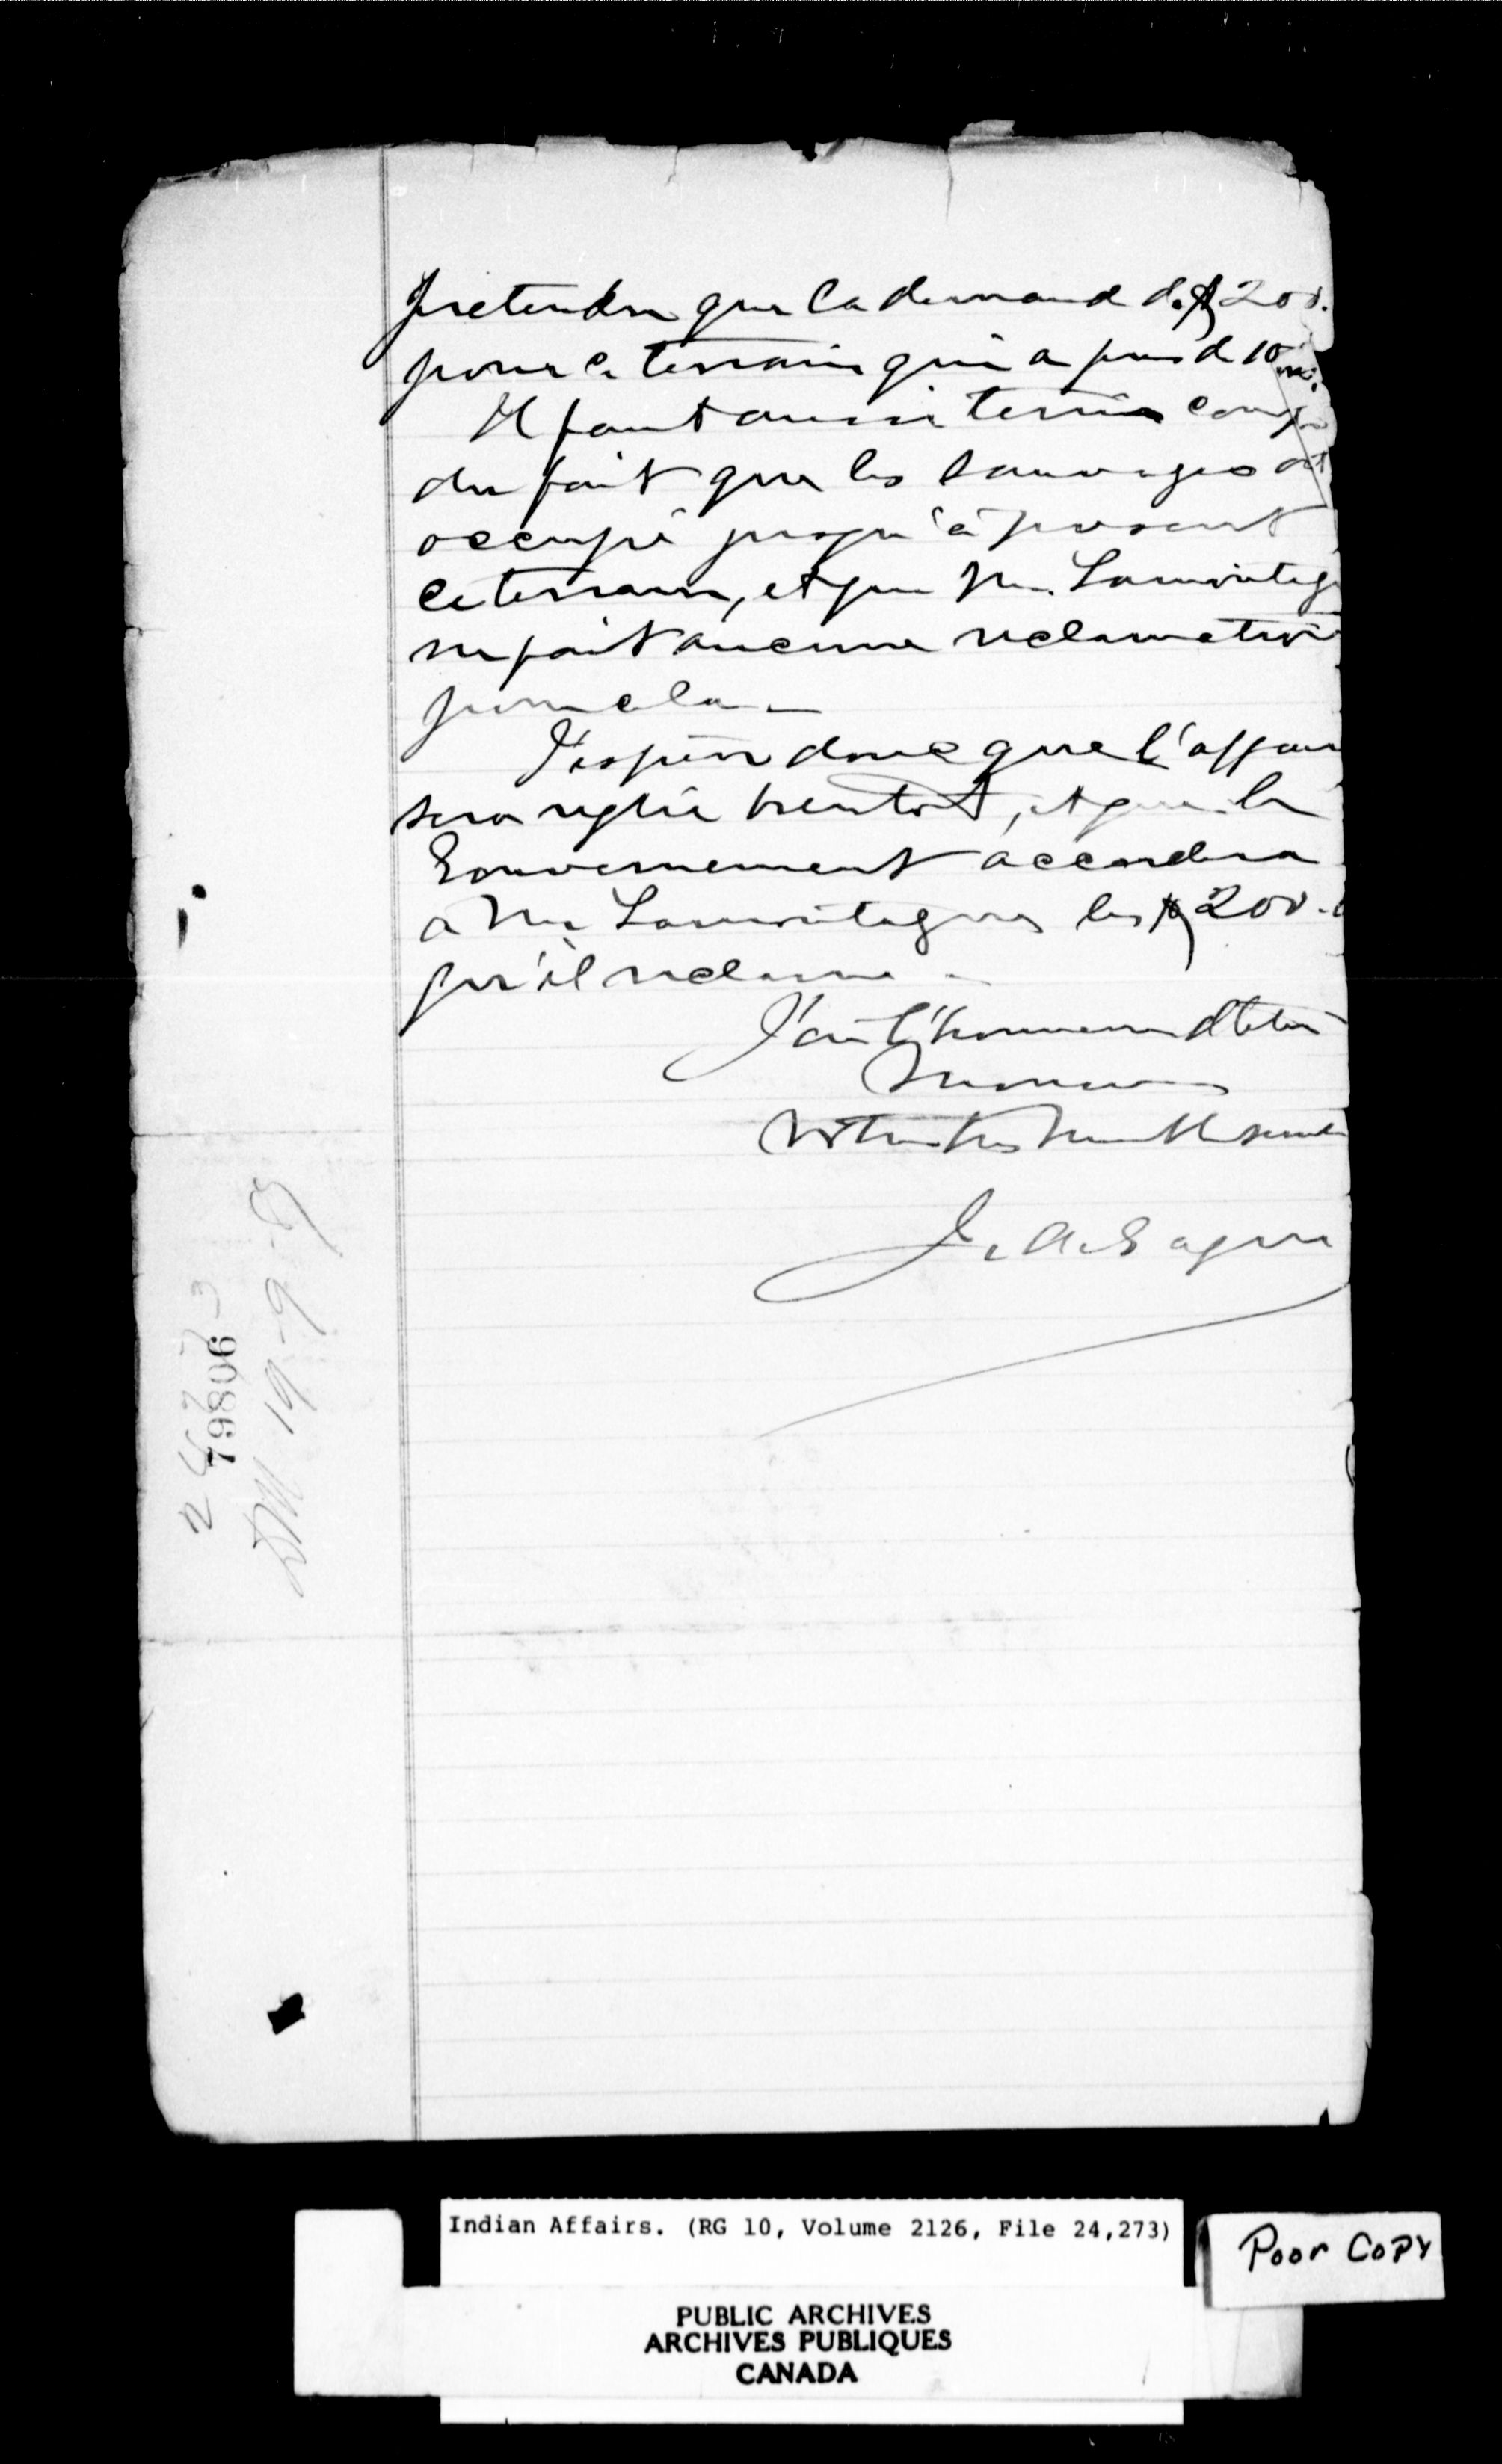 pretendre que la demand de $200.
pour ce terrain qui a pres de 10
Il faut aussi tenir comp
du fait que les sauvages ont
occupé jusqu'à present
ce terrain, et que Mr. Lamontag
ne fait aucune reclamation
pour cela —
J'espère donc que l'affair
sera reglée bientot, et que le
Gouvernement accordera
a Mr Lamontagnes les $200.
qu'il reclame —
J'ai l'honneur d'etre
Monsieur
Votre tres humble servit
J. A. Gagne
24273
79806
19-9-
Indian Affairs. (RG 10, Volume 2126, File 24,273)
Poor Copy
PUBLIC ARCHIVES
ARCHIVES PUBLIQUES
CANADA